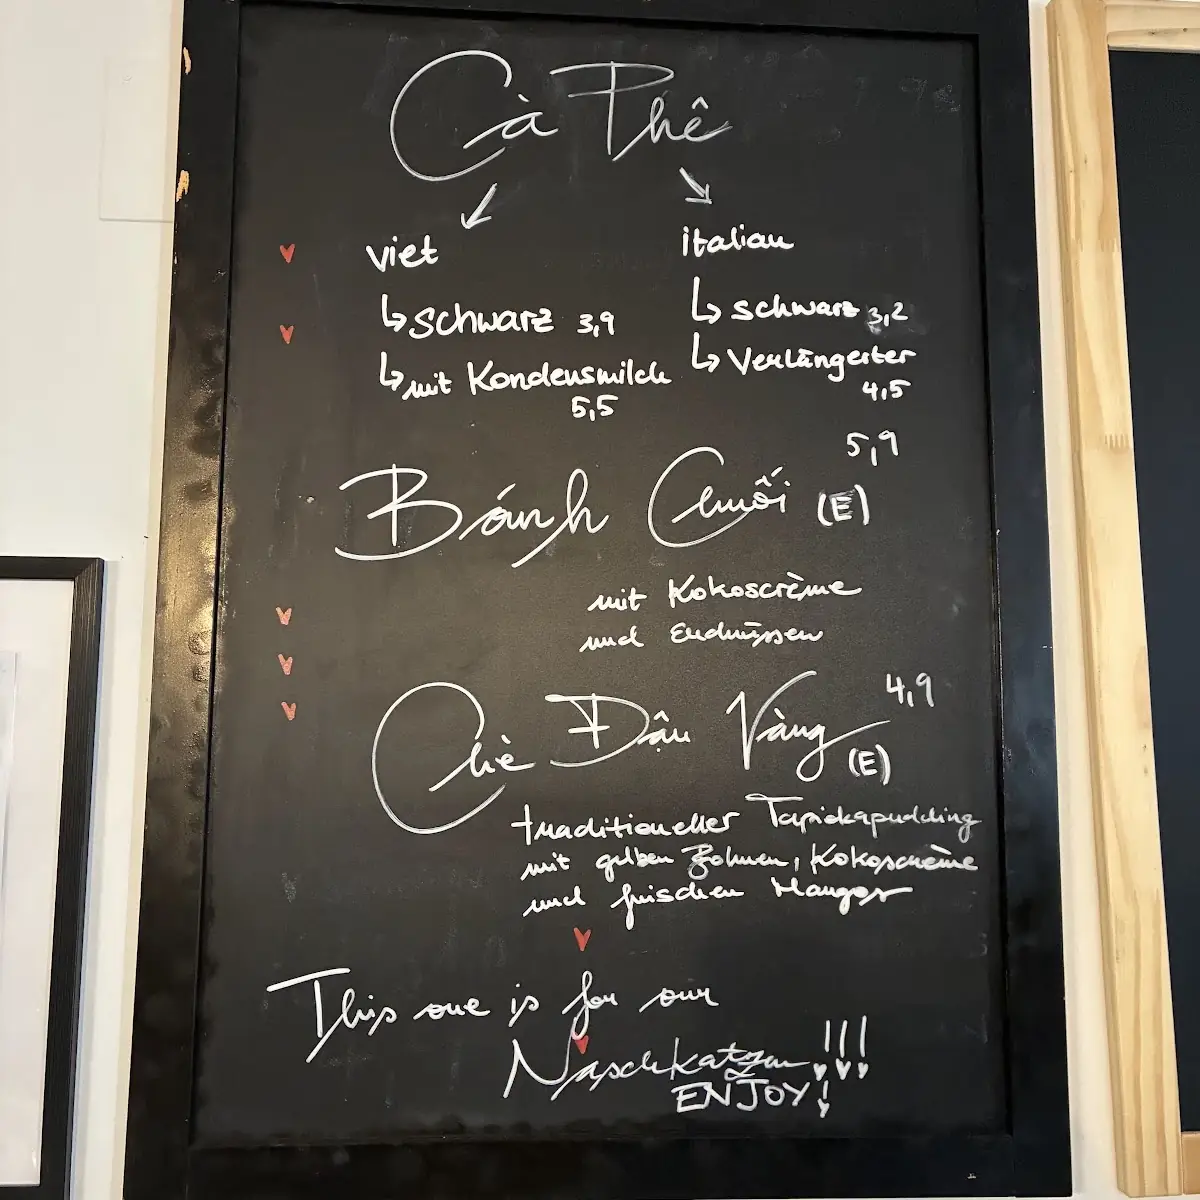 Cà Phê
viet
italian
schwarz 3,9
schwarz 3,2
mit Kondensmilch
5,5
Verlängerter
4,5
5,9
Bánh Chuối (E)
mit Kokoscrème
und Erdnüssen
4,9
Chè Đậu Vàng
(E)
traditioneller Tapiokapudding
mit gelben Bohnen, Kokoscrème
und frischen Mangos
This one is for our
Naschkatzen !!!
ENJOY!